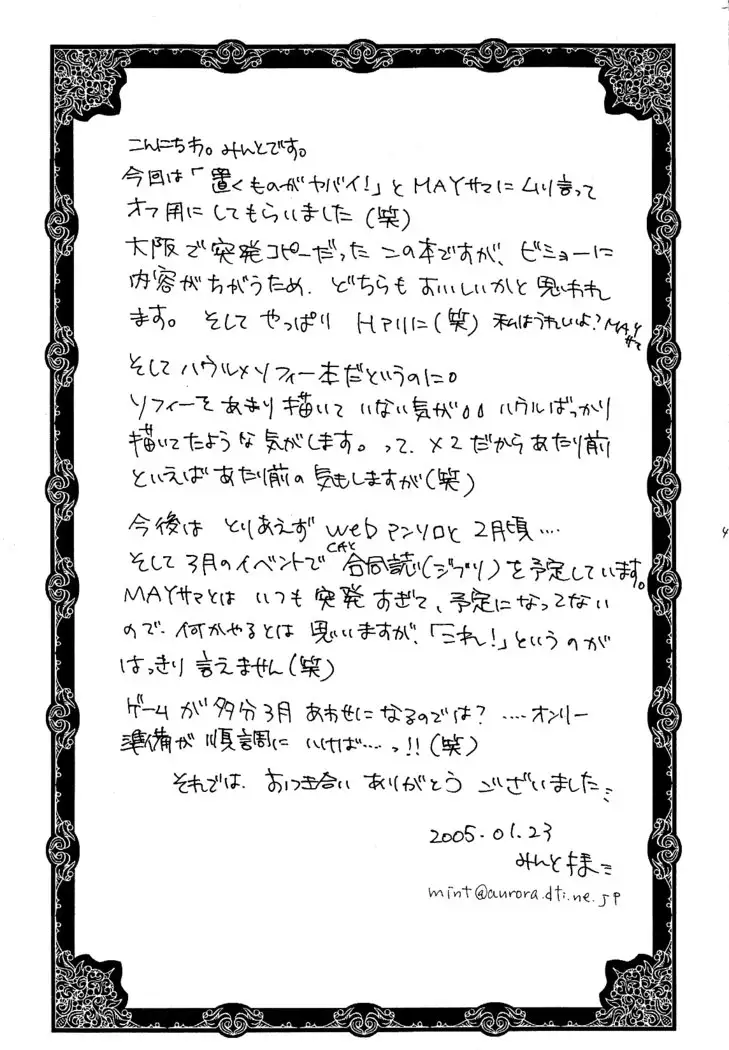 こんにちわ。みんとです。
今回は「置くものがヤバイ!」とMAYサマにムリ言って
オフ用にしてもらいました(笑)
大阪で突発コピーだったこの本ですが、ビミョーに
内容がちがうため、どちらもおいしいかと思われ
ます。そしてやっぱり HARUに(笑) 私はうれしいよ?MAY
サマ
そしてハウル×ソフィー本だというのに。
ソフィーをあまり描いていない気が。。ハウルばっかり
描いてたような気がします。って、×2だからあたり前
といえばあたり前の気もしますが(笑)
今後は とりあえず webアンソロと 2月頃‥‥
そして3月のイベントで 合同誌(ジブリ)を予定しています。
MAYサマとは いつも突発すぎて、予定になってない
ので、何かやるとは思いますが、「これ!」というのが
はっきり言えません(笑)
ゲームが多分3月あわせになるのでは?‥‥オンリー
準備が順調にいけば‥‥っ!!(笑)
それでは、おつき合いありがとうございました
2005.01.23
みんと様
mint@aurora.dti.ne.jp